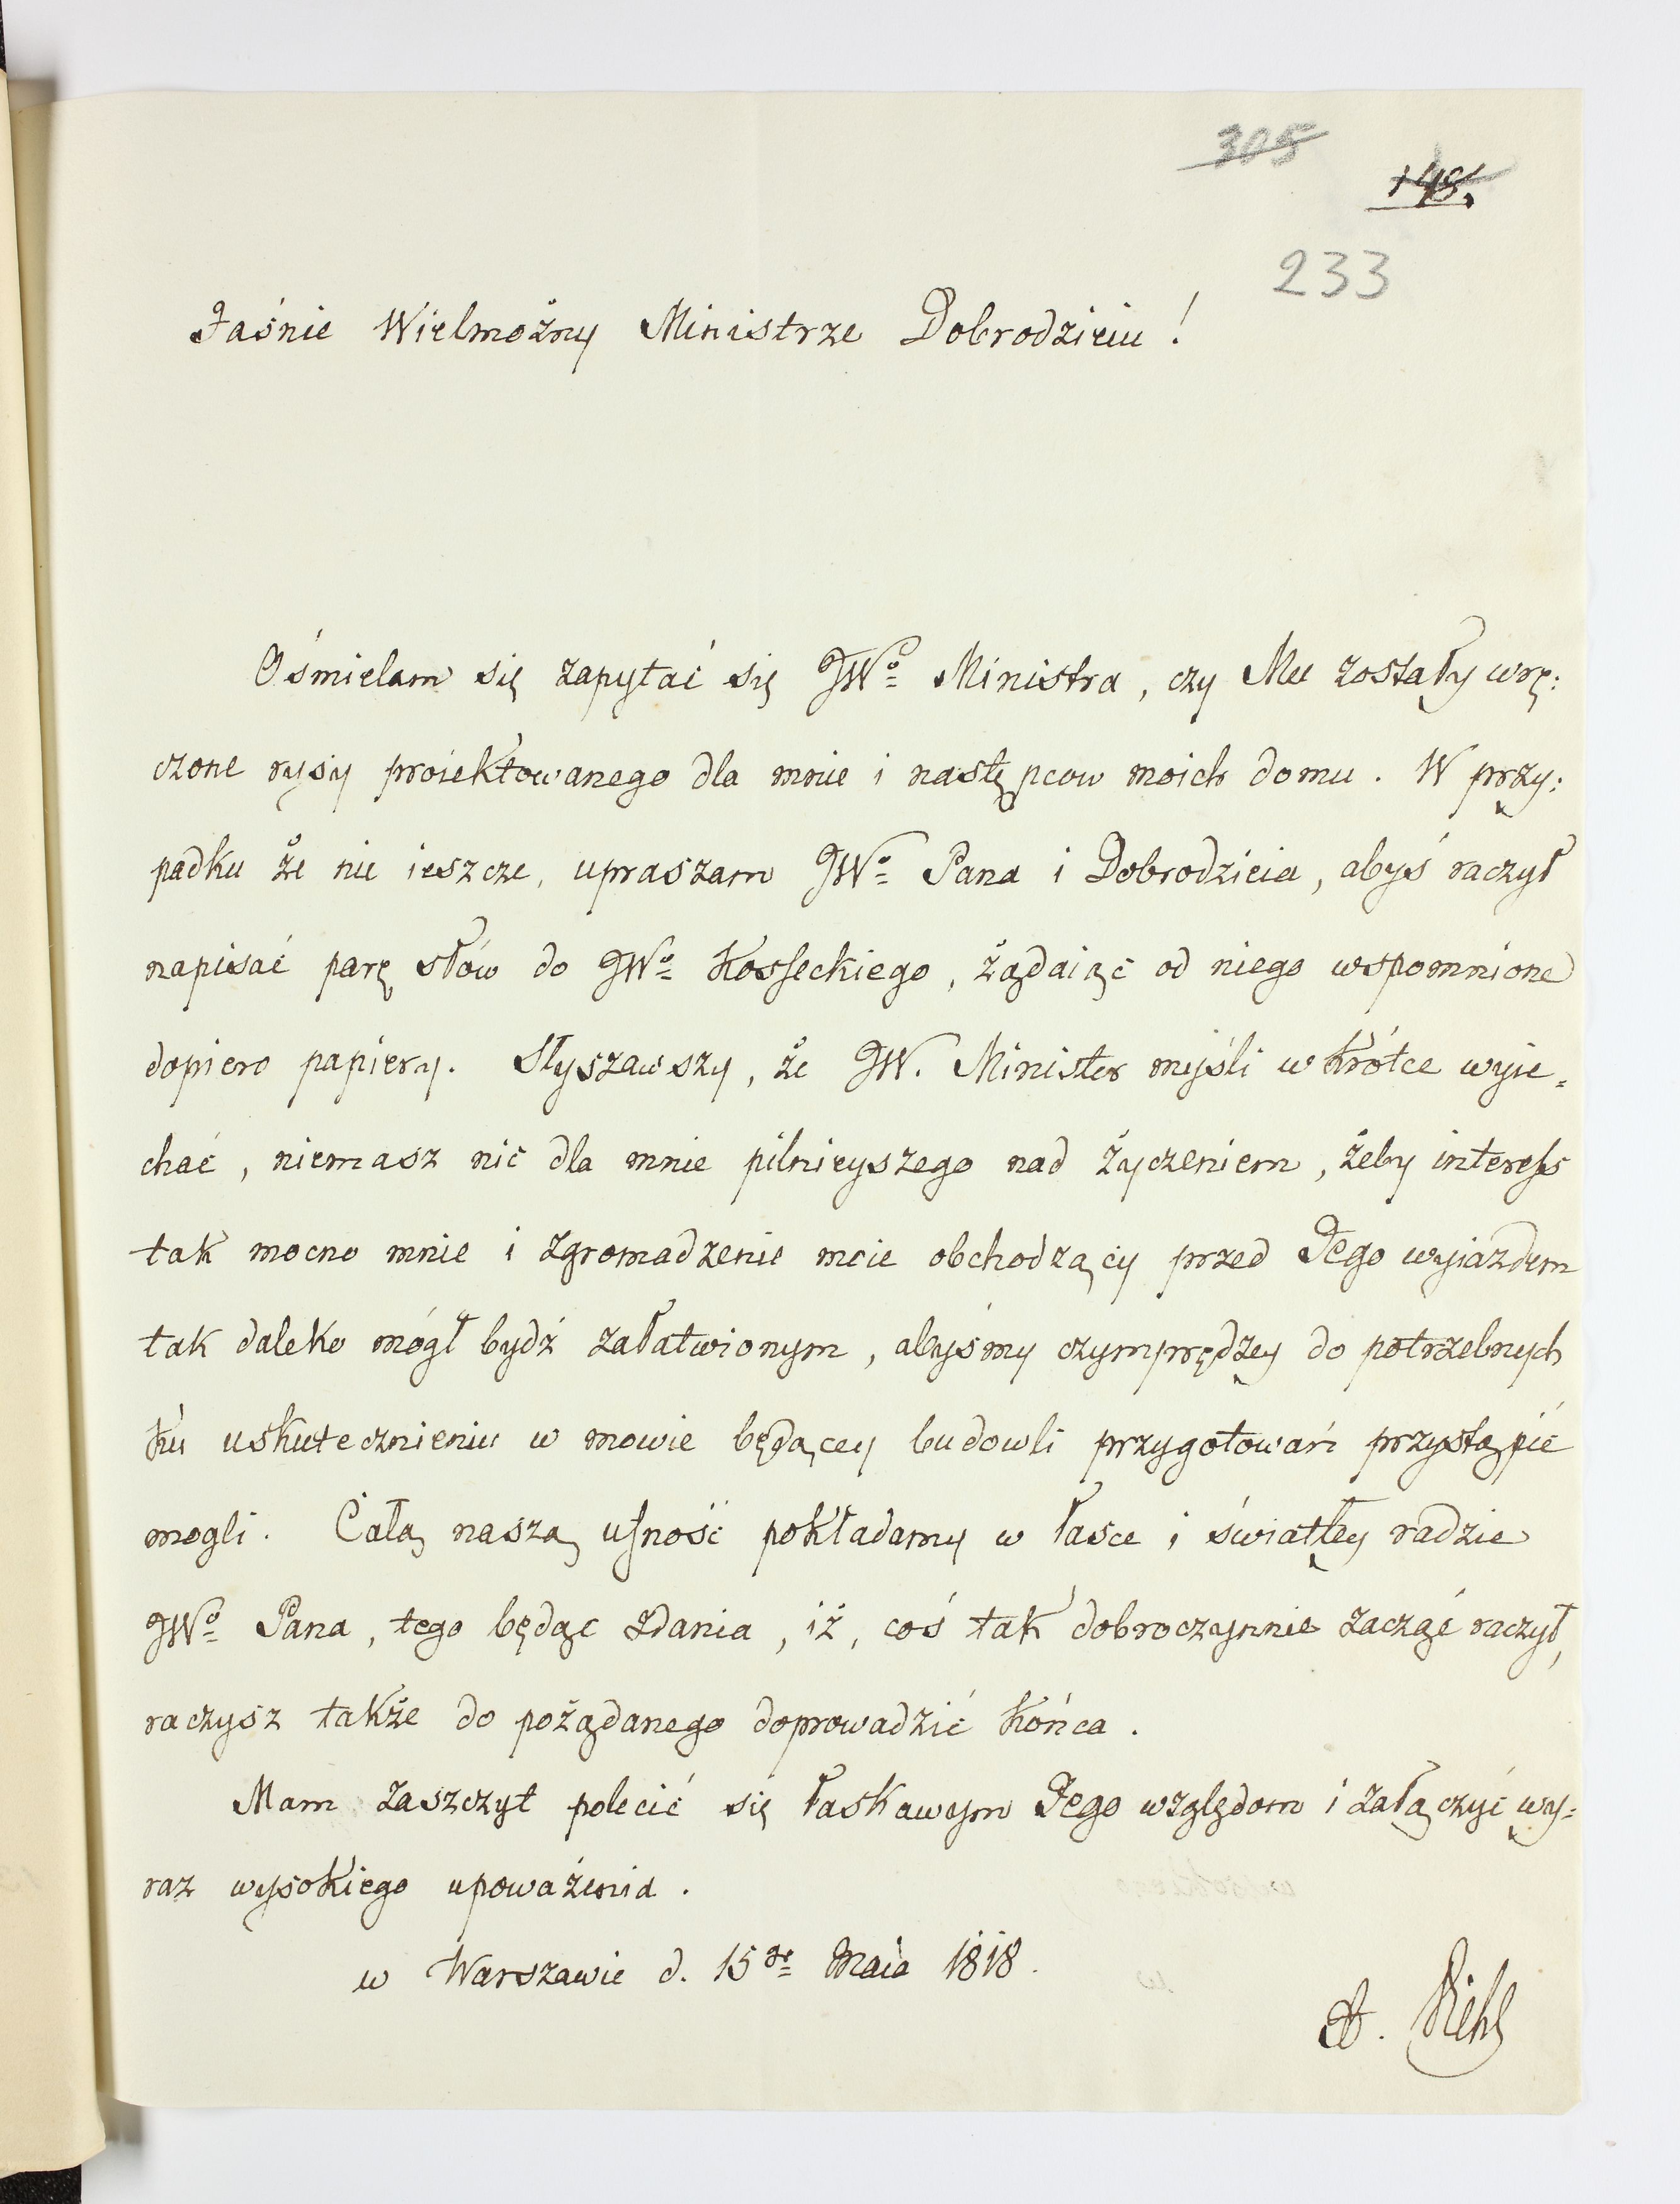 305
148.
233
Jaśnie Wielmożny Ministrze Dobrodzieiu!
Ośmielam się zapytać się JWo Ministra, czy Mu zostały wrę:
czone rysy proiektowanego dla mnie i następcow moich domu. W przy:
padku że nie ieszcze, upraszam JWo Pana i Dobrodzieia, abyś raczył
napisać parę słów do JWo Kosseckiego, żądaiąc od niego wspomnione
dopiero papiery. Słyszawszy, że JW. Minister myśli wkrótce wyie=
chać, niemasz nic dla mnie pilnieyszego nad życzeniem, żeby interess
tak mocno mnie i zgromadzenie moie obchodzący przed Jego wyiazdem
tak daleko mógł bydź załatwionym, abyśmy czymprędzey do potrzebnych
ku uskutecznieniu w mowie będącey budowli przygotowań przystąpić
mogli. Całą naszą ufność pokładamy w łasce i światłey radzie
JWo Pana, tego będąc zdania, iż, coś tak dobroczynnie zacząć raczył,
raczysz także do pożądanego doprowadzić końca.
Mam zaszczyt polecić się łaskawym Jego względom i załączyć wy:
raz wysokiego upoważenia.
w Warszawie d. 15go Maia 1818.
A. Diehl